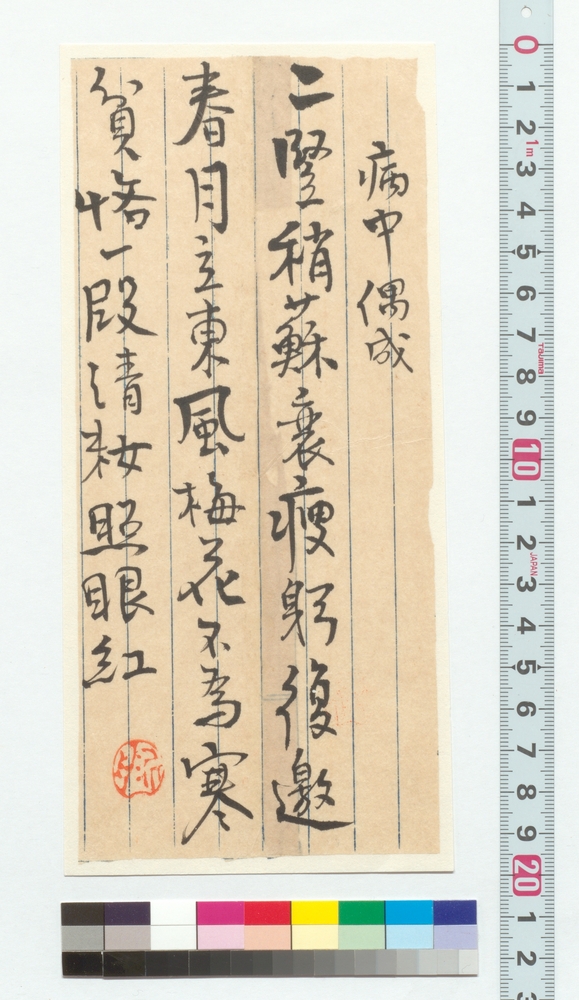 病中偶成
二豎稍蘇衰瘦躬復邀
春月立東風梅花不為寒
貧悋一段清粧照眼紅
0
1
2
1m
3
4
5
6
7
Tajima
8
9
10
1
2
JAPAN
3
4
5
6
7
8
9
20
1
2
3